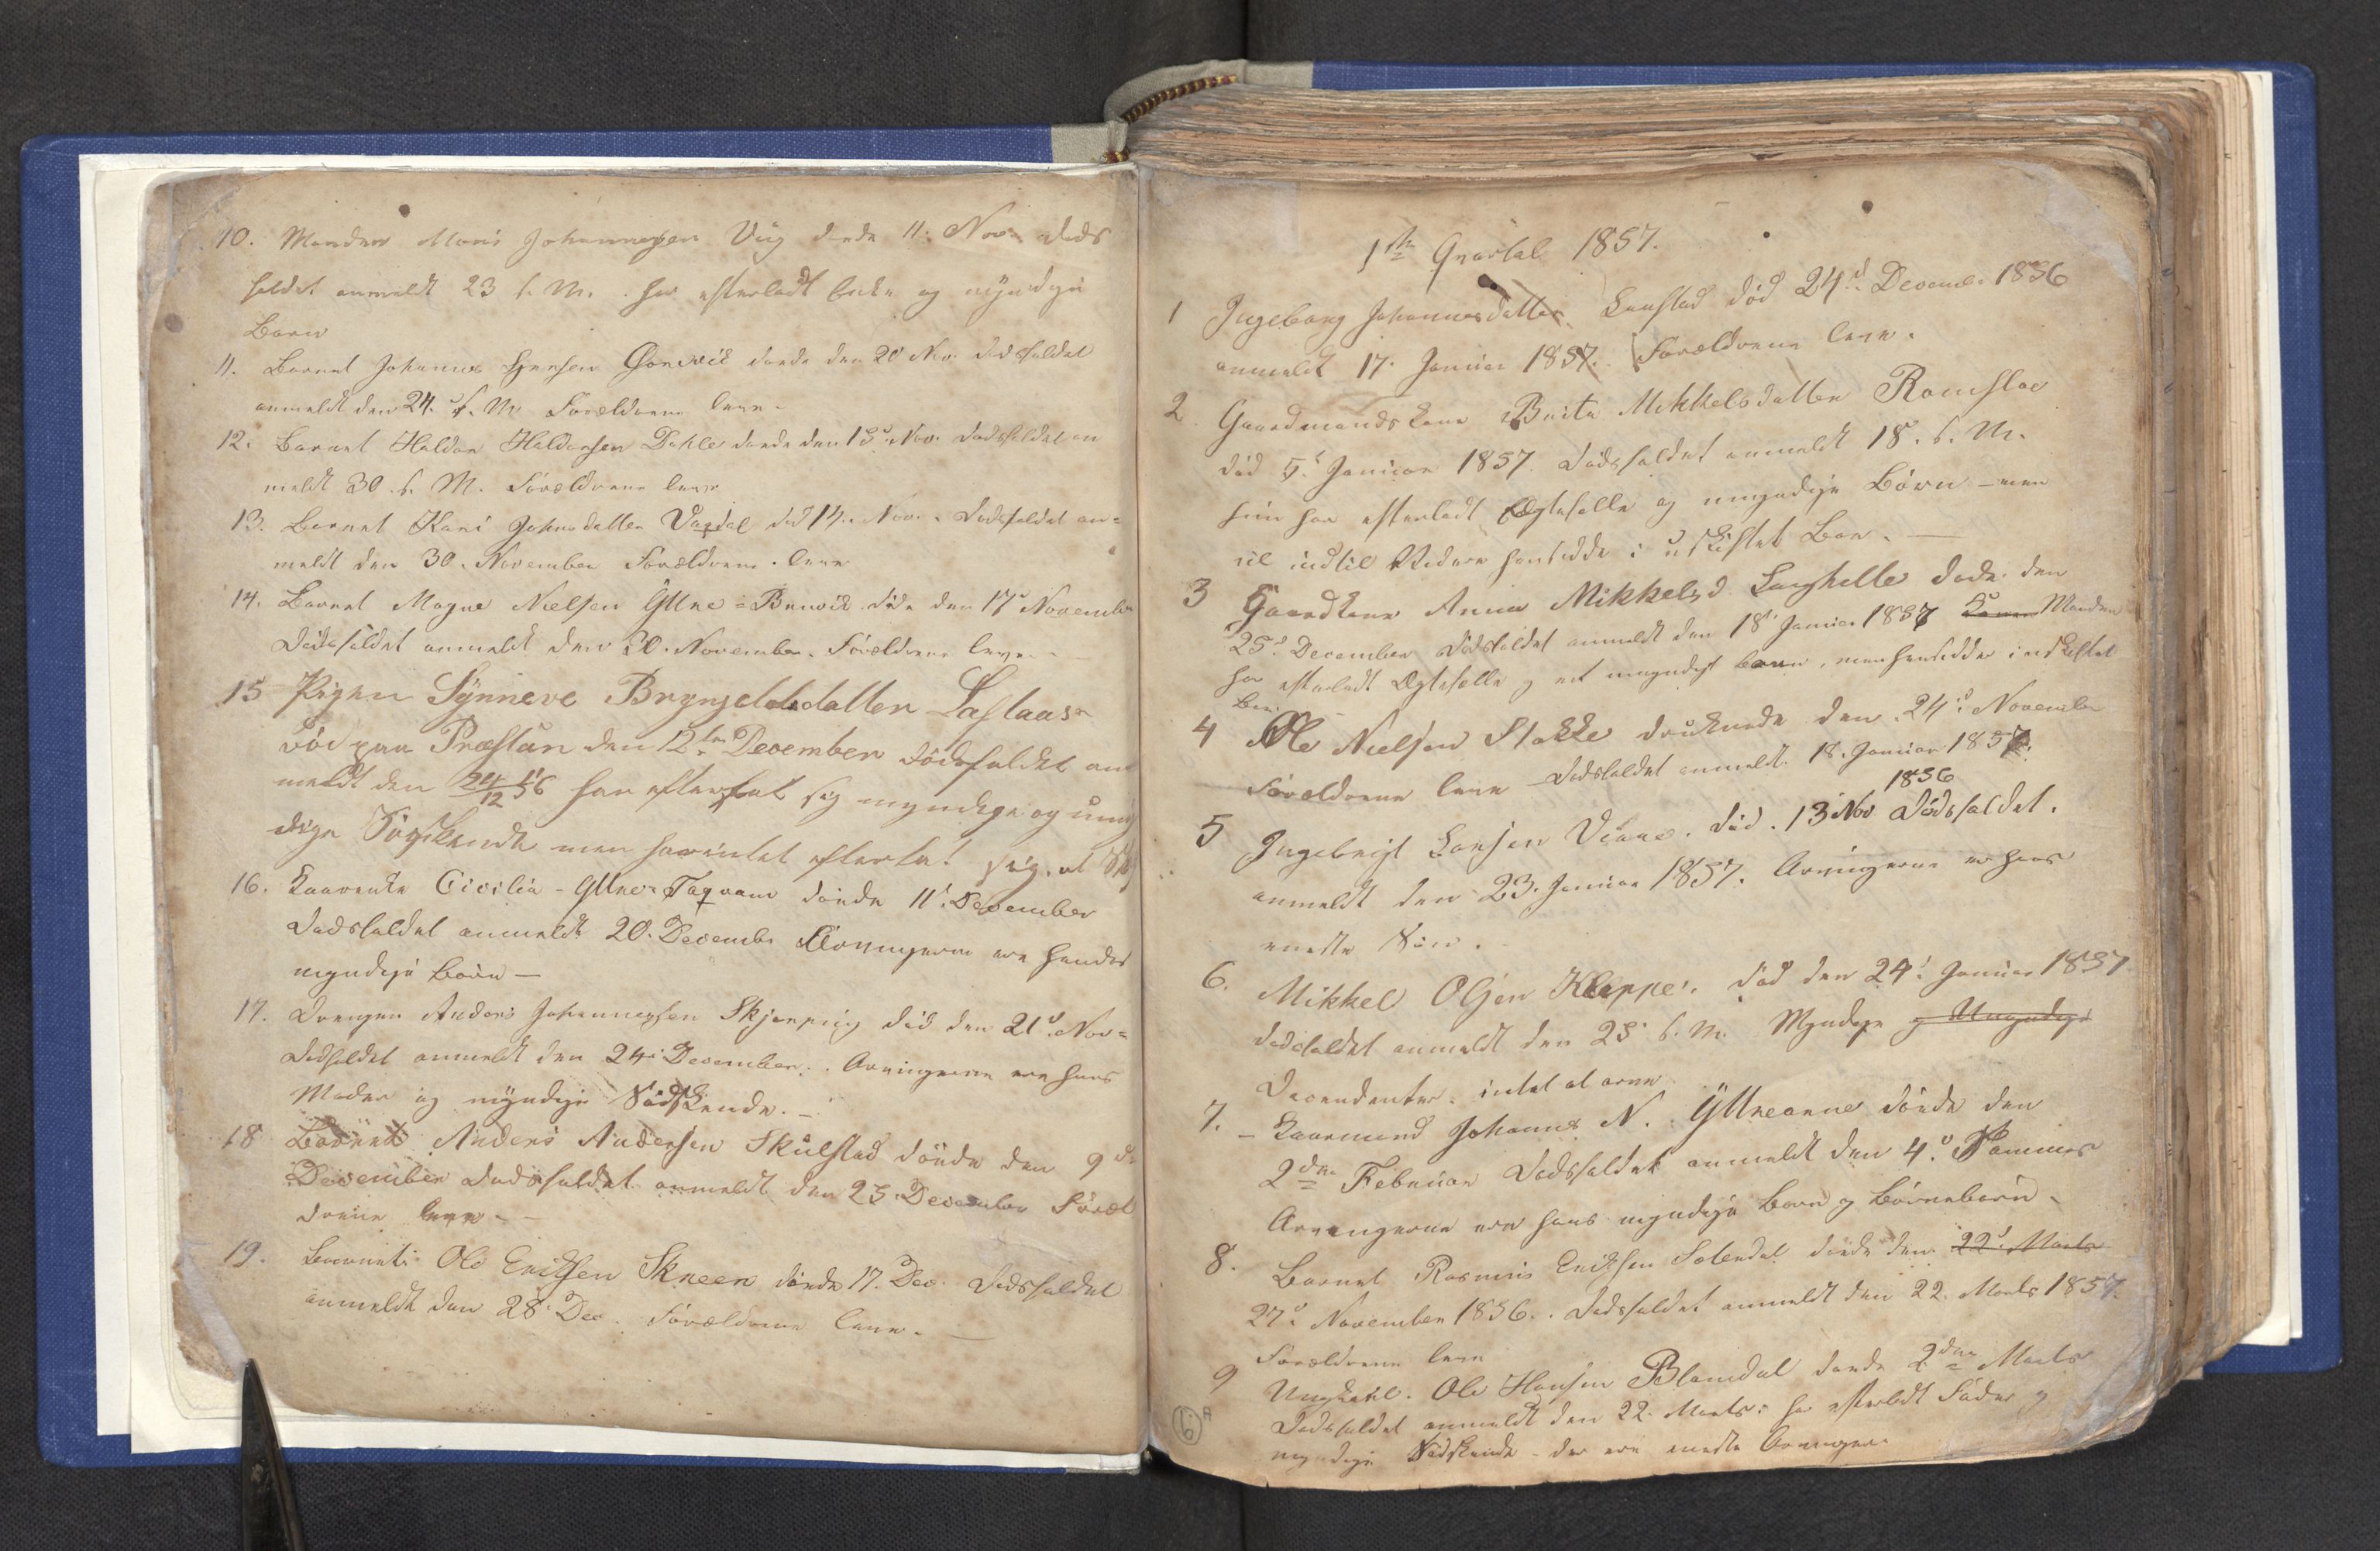 10. Manden Mons Johannessen Vig døde 11. Nov. Døds
faldet anmeldt 23 s. M. har efterladt Enke og myndige
Børn
11. Barnet Johannes døde den 20 Nov. Dødsfaldet
anmeldt den 24. s. M. Forældrene leve.
12. Barnet Haldor Haldorsen Dahle døde den 13 Nov. Dødsfaldet an
meldt 30. s. M. Forældrene leve
13. Barnet Kari Johnsdatter død 14. Nov. Dødsfaldet an=
meldt den 30. November Forældrene leve
14. Barnet Magne Nielsen Yttre=Bruvik døde den 17 November
Dødsfaldet anmeldt den 30. November. Forældrene leve.
15 Pigen Synneve Brynjelsdatter
død paa Præstun den 12te December Dødsfaldet an
meldt den 24/12 56 har efterladt sig myndige og umyn
dige Søskende men har intet efterladt sig at
16. Kaarenke Cicilia Yttre Taqvam døde 11. December
Dødsfaldet anmeldt 20. Decembr Arvingerne ere hendes
myndige Børn —
17. Drengen Anders Johannessen Skjerping død den 21d. Nov=
Dødsfaldet anmeldt den 24. December. Arvingerne ere hans
Moder og myndige Sødskende. —
18 Barnet Anders Andersen Skulstad døde den 9d.
December Dødsfaldet anmeldt den 23. December Foræl
drene leve. —
19. Barnet Ole Erichsen Skreen døde 17. Dec. Dødsfaldet
anmeldt den 28. Dec. Forældrene leve. —
1te Qvartal 1857.
1 Ingeborg Johannesdatter død 24d. Decemb. 1856
anmeldt 17. Januar 1857. Forældrene leve.
2. Gaardmandskone Brita Mikkelsdatter Romsloe
død 5. Januar 1857. Dødsfaldet anmeldt 18. s. M.
hun har efterladt Ægtefælle og myndige Børn — men
vil indtil Videre hensidde i uskiftet Boe. —
3 Gaardkone Anna Mikkelsd. Langhelle døde den
25d. December Dødsfaldet anmeldt den 18 Januar 1857 Konen Manden
har efterladt Ægtefælle og et umyndigt barn, men hensidder i uskiftet
Boe.
4 Ole Nielsen Stokke druknede den 24d. November
Forældrene leve Dødsfaldet anmeldt 18. Januar 1857.
1856
5 Ingebrigt Larsen død. 13 Nov Dødsfaldet.
anmeldt den 23. Januar 1857. Arvingerne er hans
eneste Søn.
6. Mikkel Olsen Kleppe. død den 24. Januar 1857
Dødsfaldet anmeldt den 25 s. M. Myndige og Umyndige
Decendenter. intet at arve
7. — Kaarmand Johannes N. Yttreorne døde den
2den Februar Dødsfaldet anmeldt den 4. Sammes
Arvingerne ere hans myndige Børn og Børnebørn.
8. Barnet Rasmus Erichsen døde den 22d. Marts
27d. November 1856. Dødsfaldet anmeldt den 22. Marts 1857.
Forældrene leve
9 Ungkarl. Ole Hansen Blomdal døde 2den Marts
Dødsfaldet anmeldt den 22. Marts: har efterladt Fader og
myndige Sødskende - der ere eneste Arvinger
6 A